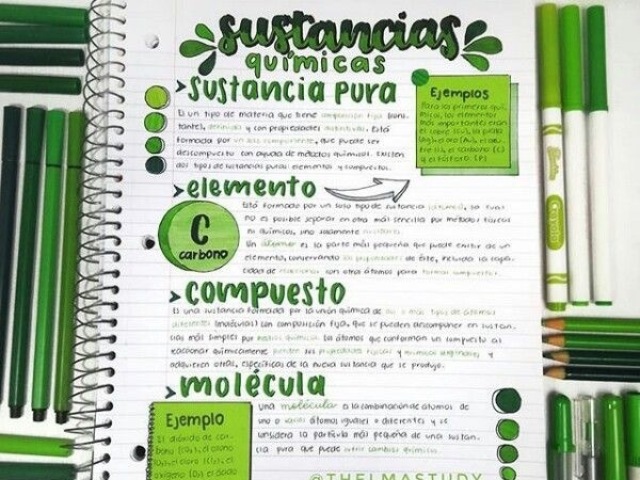 sustancias
químicas
>sustancia pura
Es un tipo de materia que tiene composición fija (cons-
tante), definida y con propiedades distintivas. Está
formada por un solo componente, que puede ser
descompuesto con ayuda de métodos químicos. Existen
dos tipos de sustancias puras: elementos y compuestos.
Ejemplos
Para los primeros quí-
micos, los elementos
más importantes eran
el cobre (Cu), la plata
(Ag), el oro (Au), el azu-
fre (S), el carbono (C)
y el fósforo (P)
>elemento
C
carbono
Está formado por un solo tipo de sustancia (átomo), la cual
no es posible separar en otra más sencilla por métodos físicos
ni químicos, uno solamente
Un átomo es la parte más pequeña que puede existir de un
elemento, conservando las propiedades de éste, incluida la capa-
cidad de reaccionar con otros átomos para formar compuestos.
>compuesto
Es una sustancia formada por la unión química de dos o más tipos de átomos
diferentes (moléculas) con composición fija, que se pueden descomponer en sustan-
cias más simples por medios químicos. Los átomos que conforman un compuesto al
reaccionar químicamente pierden sus propiedades físicas y químicas originales y
adquieren otras, específicas de la nueva sustancia que se produjo.
>molécula
Ejemplo
El dióxido de car-
bono (CO₂), el ozono
(O₃), el cloro (Cl₂), el
oxígeno (O₂), el
Una molécula es la combinación de átomos de
uno o varios átomos iguales o diferentes y se
considera la partícula más pequeña de una sustan-
cia que puede sufrir cambios químicos.
@THELMASTUDY
Crayola